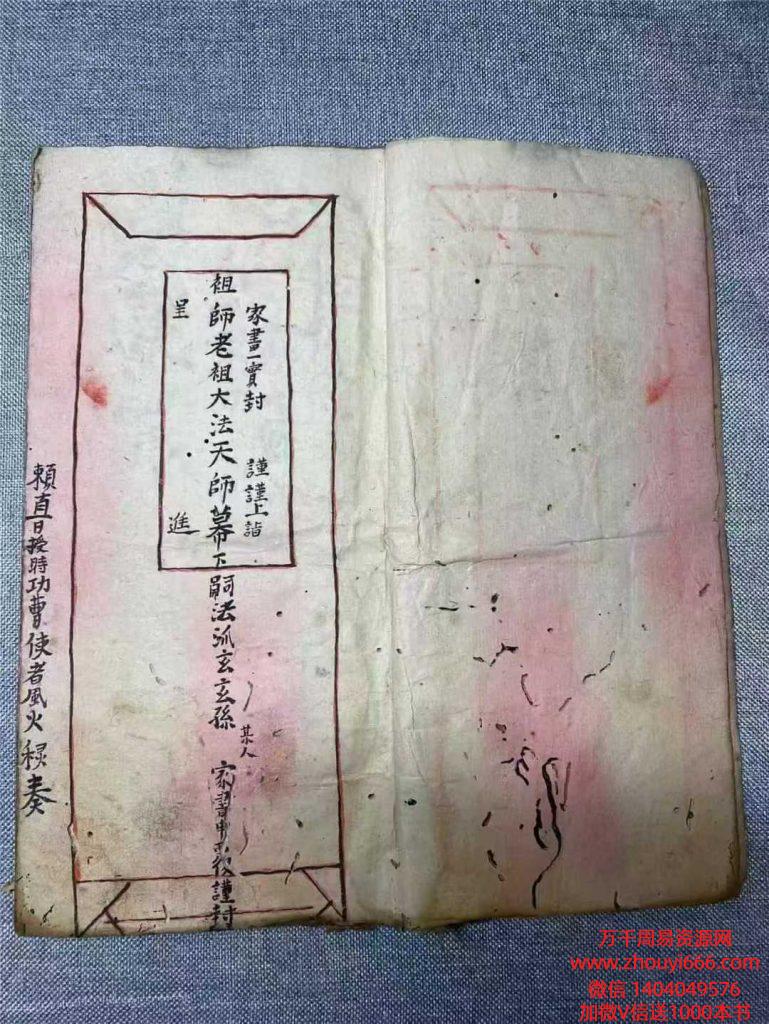 家書一實封　謹謹上詣
祖師老祖大法天師幕下嗣法派玄玄孫　某人　家書申　後謹封
呈　進
賴直日授時功曹使者風火　奏
万千周易资源网
www.zhouyi666.com
微信 1404049576
加微V信送1000本书